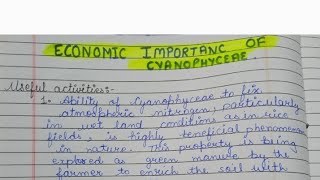 ECONOMIC IMPORTANC OF
CYANOPHYCEAE
Useful activities:-
1. Ability of Cyanophyceae to fix
atmospheric nitrogen, particularly
in wet land conditions as in rice
fields, is highly beneficial phenomenon
in nature. This property is being
explored as green manure by the
farmer to enrich the soil with